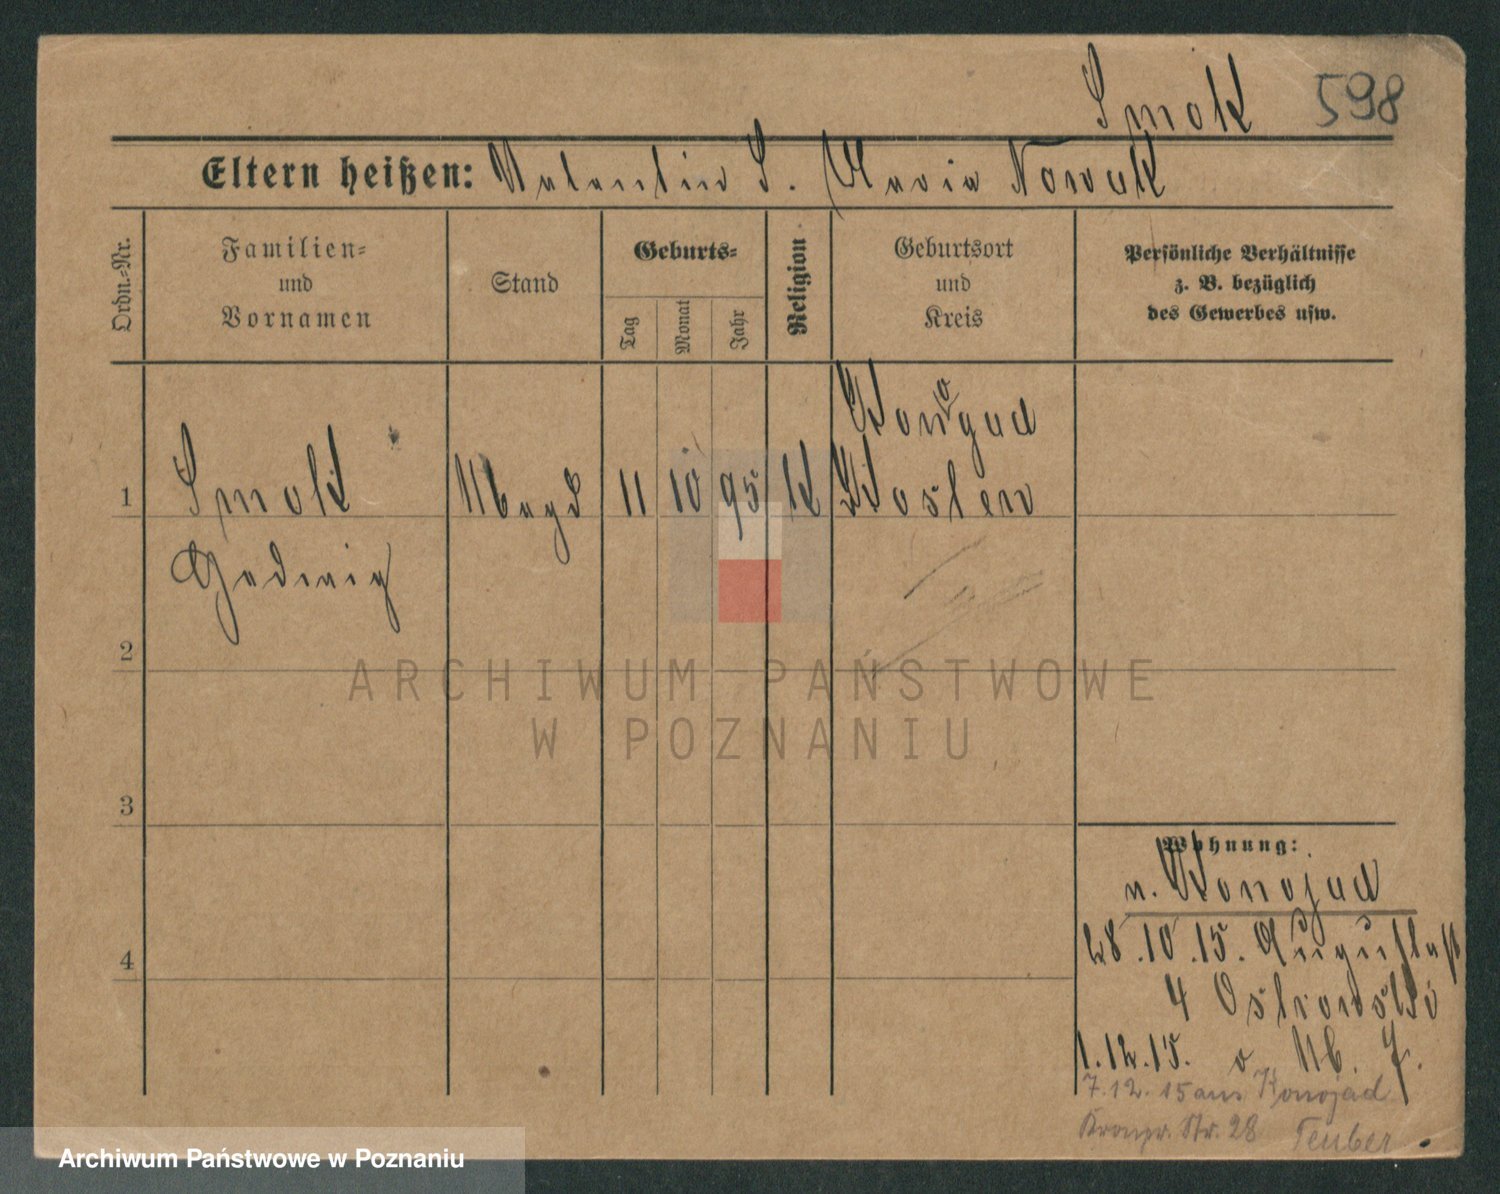 Smok 598
Eltern heißen: Valentin S. Maria Nowak
Ordn.-Nr.
Familien-
und
Vornamen
Stand
Geburts-
Tag
Monat
Jahr
Religion
Geburtsort
und
Kreis
Persönliche Verhältnisse
z. B. bezüglich
des Gewerbes usw.
Konogad
1 Smok Magd 11 10 95 K Kosten
Hedwig
2
3
4
Wohnung:
n. Konojad
28.10.15. Augustastr
4 Ostrowski
1.12.15. v. M. 7.
7.12.15 aus Konojad
Kronpr. Str. 28 Teuber
ARCHIWUM PAŃSTWOWE
W POZNANIU
Archiwum Państwowe w Poznaniu